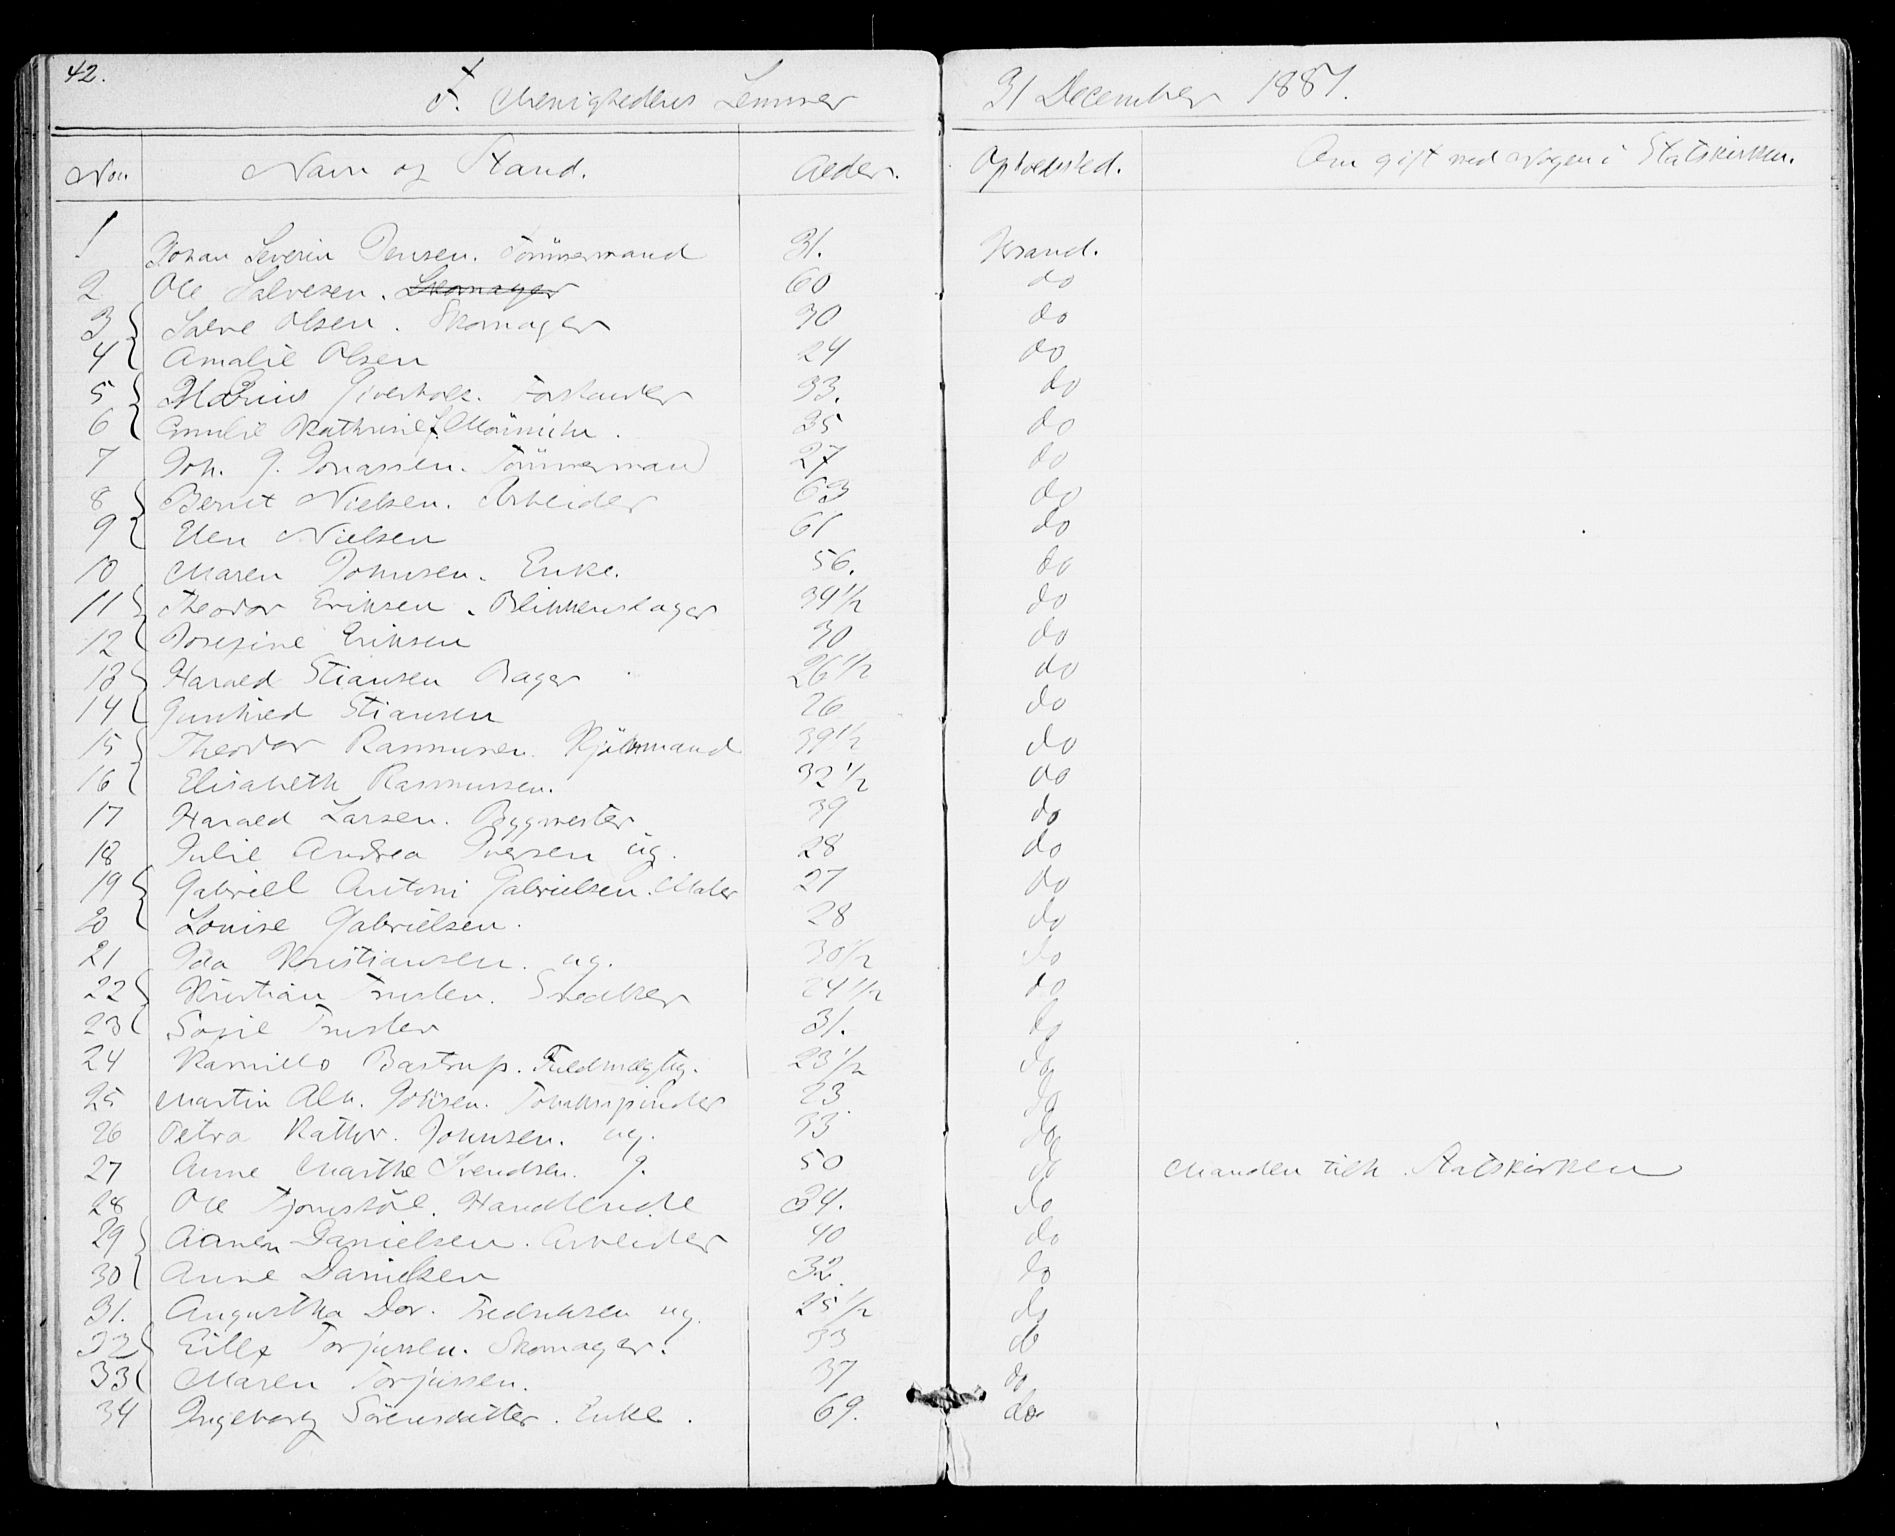 42.
F. Menighedens Lemmer 31 December 1881.
Nou Navn og Stand. Alder. Opholdsted. Om gift med Nogen i Statskirken.
1 Johan Severin Jensen. Tömmermand 31. Krsand.
2 Ole Salvesen. Skomager 60 do
3 Salve Olsen. Skomager 30 do
4 Amalie Olsen 24 do
5 Marius Giverholt. Forstander 33. do
6 Emilie Kathrine f. Mönniche. 35 do
7 Joh. G. Jonassen. Tömmermand 27 do
8 Bernt Nielsen. Arbeider 63 do
9 Elen Nielsen 61 do
10 Maren Johnsen. Enke. 56. do
11 Theodor Eriksen. Blikkenslager 34 1/2 do
12 Josefine Eriksen 30 do
13 Harald Stiansen Bager 26 1/2 do
14 Gunhild Stiansen 26 do
15 Theodor Rasmussen. Kjöbmand 39 1/2 do
16 Elisabeth Rasmussen. 32 1/2 do
17 Harald Larsen. Bygmester 39 do
18 Julie Andrea Iversen ug. 28 do
19 Gabriel Antoni Gabrielsen. Maler 27 do
20 Louise Gabrielsen. 28 do
21 Ida Kristiansen. ug. 30 1/2 do
22 Kristian Truslew. Snedker 24 1/2 do
23 Sofie Truslew 31. do
24 Kamillo Bastrup. Fuldmægtig. 23 1/2 do
25 Martin Alb. Jobsen. Tobakspinder 23 do
26 Petra Kathr. Johnsen. ug. 33 do
27 Anne Marthe Svendsen. g. 50 do Manden tilh. Statskirken
28 Ole Tjomstöl. Handlende 34. do
29 Aanen Danielsen. Arbeider 40 do
30 Anne Danielsen 32. do
31. Augustha Dor. Fredriksen ug. 25 1/2 do
32 Eilef Torjussen. Skomager. 33 do
33 Maren Torjussen. 37 do
34 Ingeborg Sörensdatter. Enke. 69. do